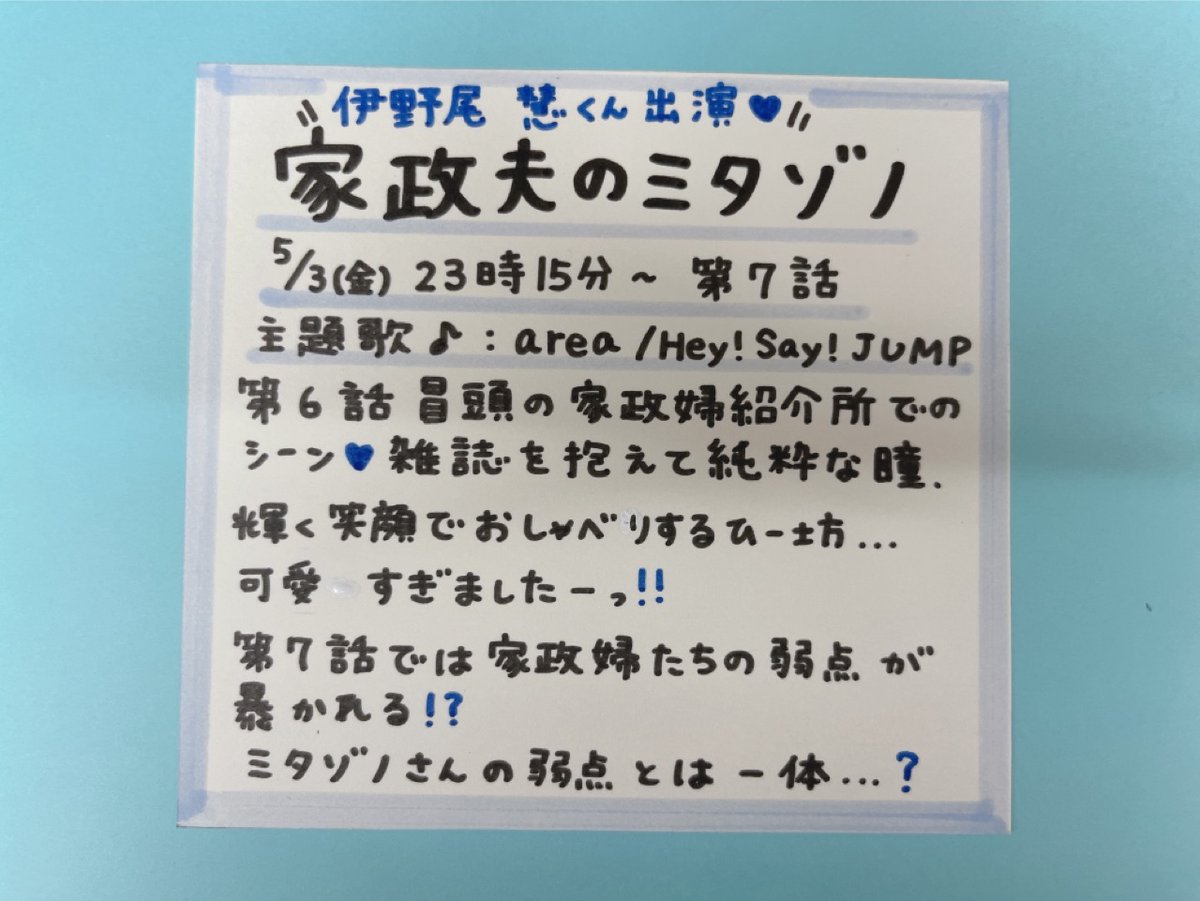 \\伊野尾 慧くん出演💙//
家政夫のミタゾノ
5/3(金) 23時15分~ 第7話
主題歌♪:area/Hey!Say!JUMP
第6話冒頭の家政婦紹介所での
シーン💙雑誌を抱えて純粋な瞳、
輝く笑顔でおしゃべりするひー坊...
可愛 すぎましたーっ!!
第7話では家政婦たちの弱点が
暴かれる!?
ミタゾノさんの弱点とは一体...?